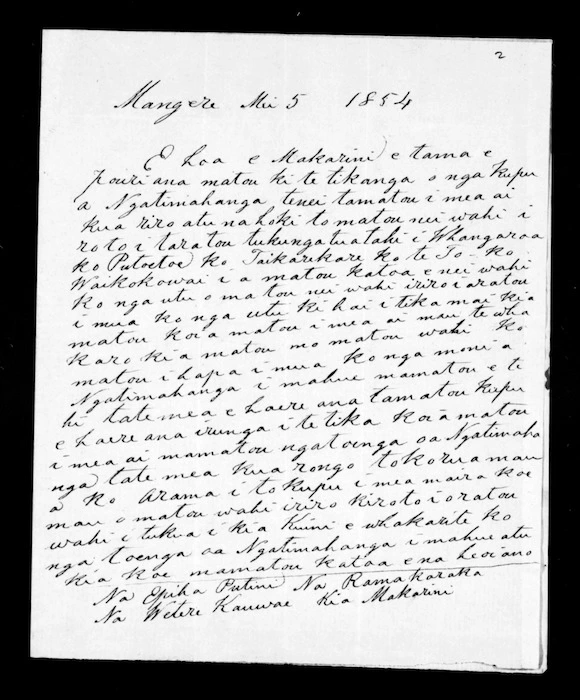 2
Mangere Mei 5 1854
E hoa e Makarini e tama e
pouri ana matou ki te tikanga o nga kupu
a Ngatimahanga tenei tamatou i mea ai
kua riro atu na hoki to matou nei wahi i
roto i taratou tukunga tuatahi i Whangaroa
ko Putoetoe ko Taikarekare ko te To - ko
Waikokowai i a matou katoa e nei wahi
ko nga utu o matou nei wahi iriro i aratou
i mua ko nga utu ki hai i tika mai kia
matou koia matou i mea ai mau te wha
karo kia matou mo matou wahi ko
matou i hapa i mua ko nga moni a
Ngatimahanga i mahue mamatou e te
hi tate mea e haere ana tamatou kupu
e haere ana irunga i te tika koia matou
i mea ai mamatou ngatoenga oa Ngatimaha
nga tate mea kua rongo tokorua mau
a ko Arama i to kupu i mea maira koe
mau o matou wahi iriro kiroto i oratou
wahi i tukua i kia Kuini e whakarite ko
nga toenga oa Ngatimahanga i mahue atu
kia koe mamatou kataa e na
Na Epiha Putini Na Ramakaraka
Na Wetere Kauwae Kia Makarini